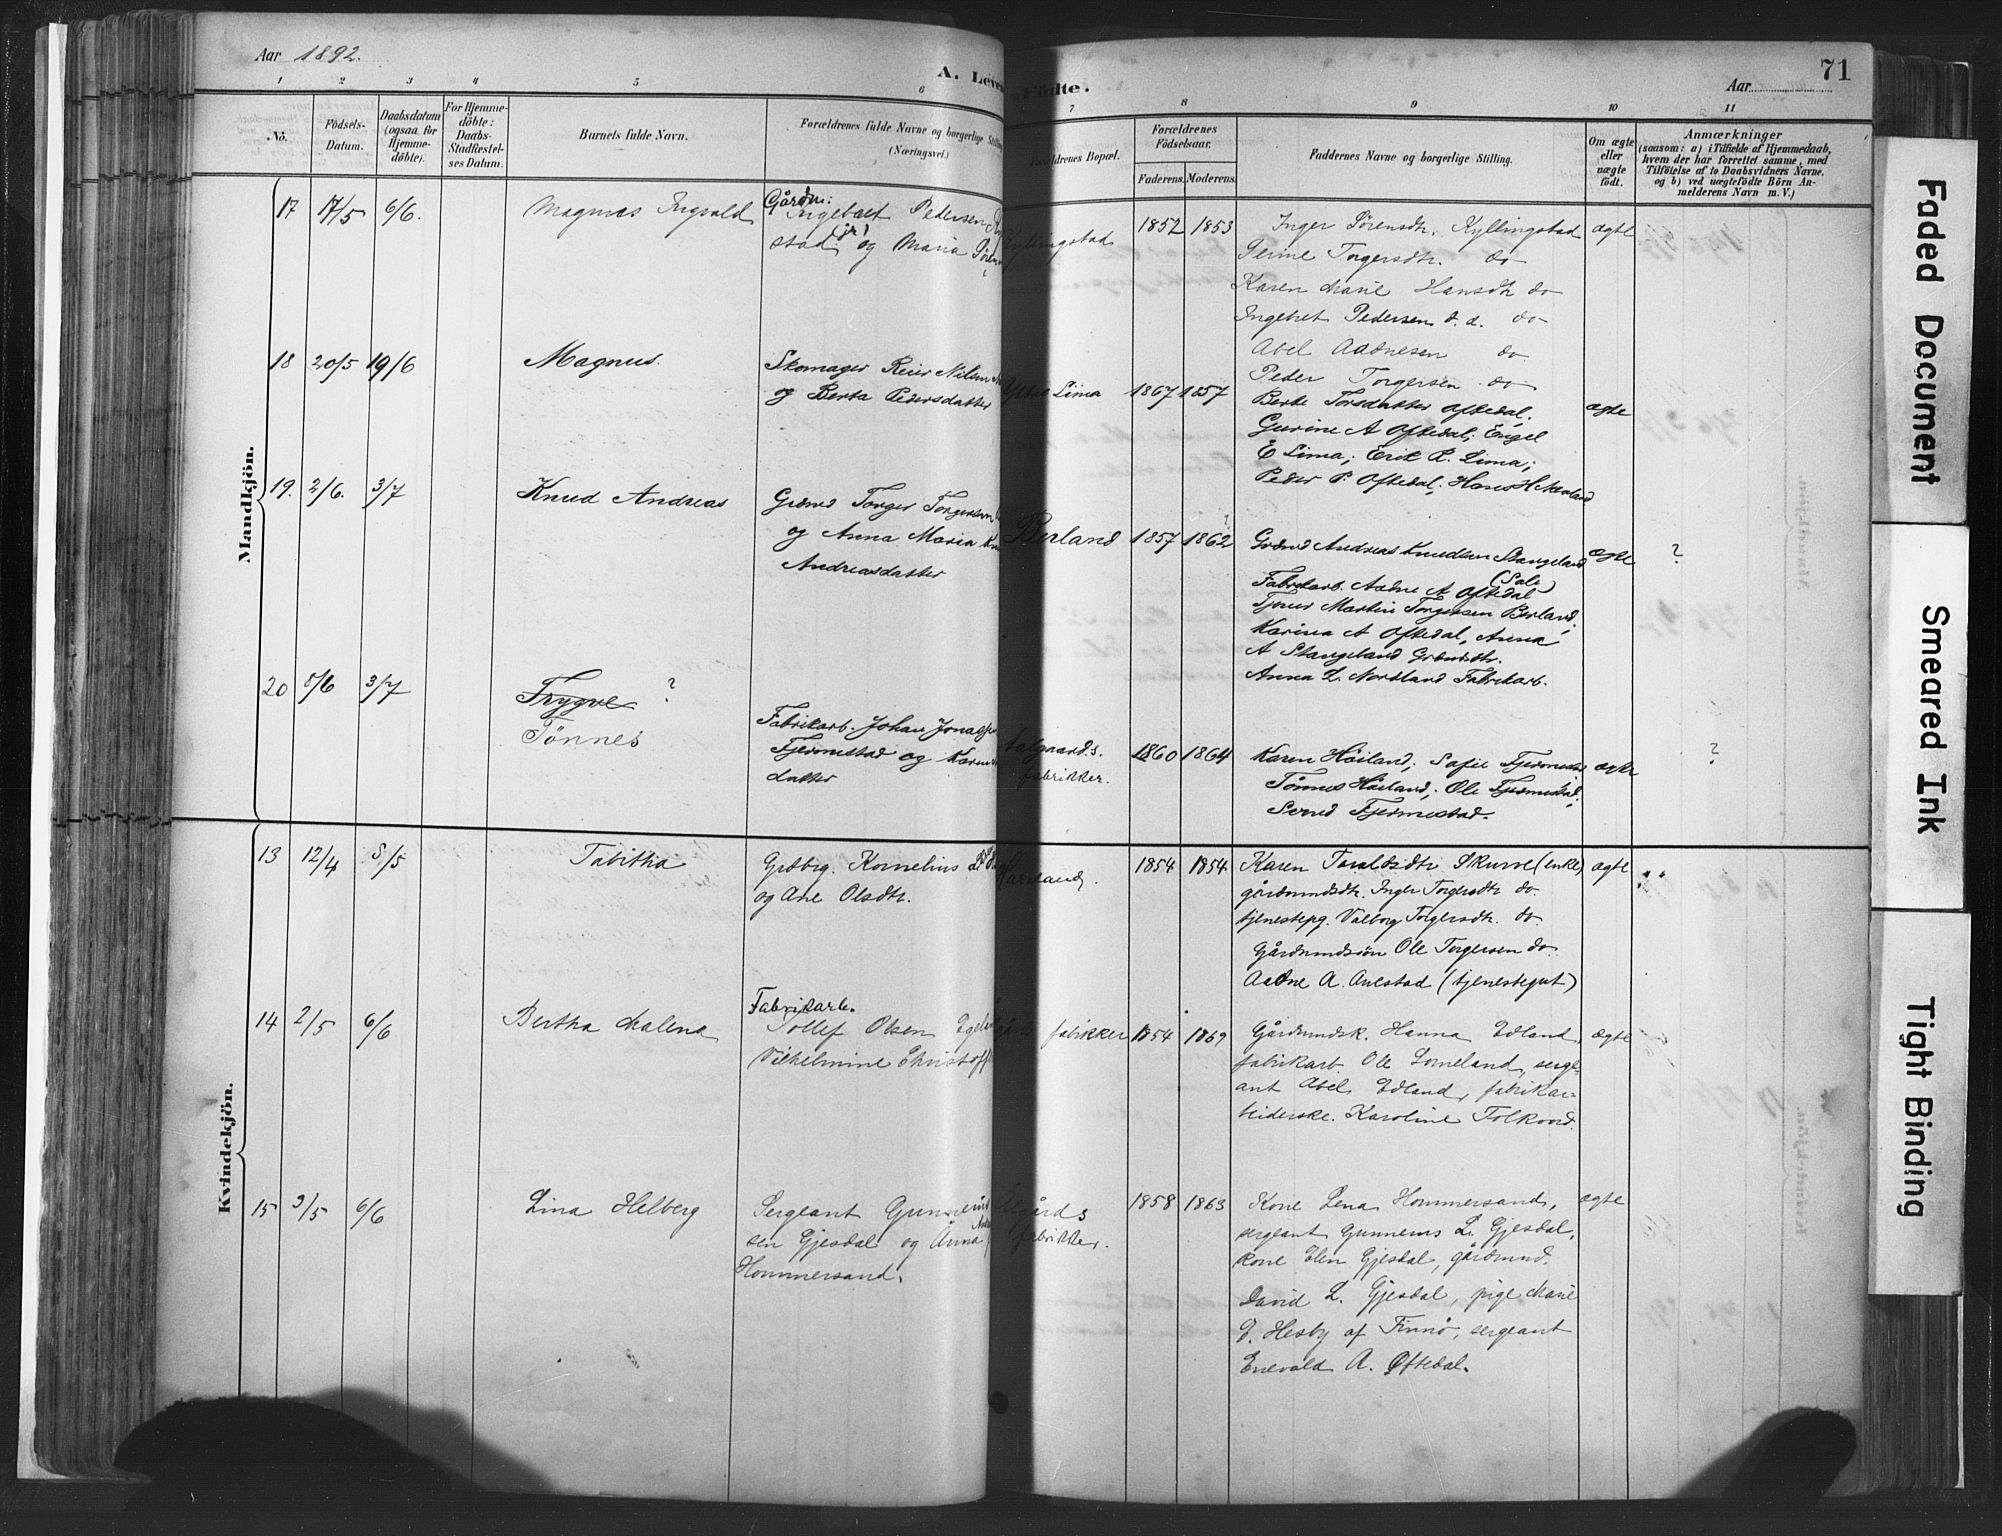 Aar 1892.
A. Levende Fødte.
Aar
71
1 2 3 4 5 6 7 8 9 10 11
No.
Födsels-
Datum.
Daabsdatum
(ogsaa for
Hjemme-
döbte).
For Hjemme-
döbte:
Daabs-
Stadfæstel-
ses Datum.
Barnets fulde Navn.
Forældrenes fulde Navne og borgerlige
(Næringsvei.)
Forældrenes Bopæl.
Forældrenes
Födselsaar.
Faderens. Moderens.
Faddernes Navne og borgerlige Stilling.
Om ægte
eller
uægte
födt.
Anmærkninger
(saasom: a) i Tilfælde af Hjemmedaab,
hvem der har forrettet samme, med
Tilföielse af to Daabsvidners Navne.
og b) ved uægtefödte Börn An-
melderens Navn m. V.)
Mandkjön.
17 17/5 6/6. Magnus Ingvald
Gårdm:
Ingebret Pedersen
stad (jr) og Maria
Kyllingstad
1852 1853
Inger Sörensdtr. Kyllingstad
Serine Torgersdtr. do
Karen Marie Hansdtr do
Ingebret Pedersen d. æ. do
Abel Aadnesen do
Peder Torgersen do
ægte
18 20/5 19/6 Magnus.
Skomager Reier Nilsen
og Berta Pedersdatter
Lima
1867 1857
Berte Torsdatter Oftedal.
Gurine A Oftedal, Engel
E Lima; Erik R. Lima;
Peder P. Oftedal; Hans H
ægte
19. 2/6. 3/7 Knud Andreas
Grdmd Torger Torgersen
og Anna Maria
Andreasdatter
Berland
1857 1862 ?
Grdmd Andreas Knudsen Stangeland
Fabrikarb. Aadne A Oftedal
Tjener Martin Torgersen Berland;
Karina A Oftedal, Anna
A Stangeland Grdmdsdtr.
Anna L. Nordland Fabrikarb.
ægte ?
20 5/6 3/7 Trygve ?
Tönnes
Fabrikarb. Johan
Fjermestad og Karen
datter
Aalgaards.
fabrikker.
1860 1864
Karen Höiland; Sofie
Tönnes Höiland; Ole Fjermestad;
Svend Fjermestad.
ægte ?
Kvindekjön.
13 12/4 8/5 Tabitha
Grdbrg. Kornelius
og Ane Olsdtr.
1854 1854
Karen Taraldsdtr Skurve (enke)
gårdmmdsdtr. Inger Torgersdtr do
tjenestepg. Valborg Torgersdtr. do
Gårdmmdssön Ole Torgersen do
Aadne A. Auestad (tjenestegut)
ægte
14 2/5 6/6 Bertha Malena
Fabrikarb.
Tollef Olsen
Vilhelmine
fabrikker
1854 1869
Gårdmmdsk. Hanna Edland,
fabrikarb. Ole Lomeland, serge-
ant Abel Edland, fabrikar-
beiderske. Karoline Folkvord.
ægte
15 3/5 6/6 Lina Helberg
Sergeant
sen Gjesdal og Anna
Hommersand.
Ålgårds
fabrikker.
1858 1863
Kone Lena Hommersand,
sergeant Gunneius L. Gjesdal,
kone Elen Gjesdal, gårdmmd.
David L. Gjesdal, pige Marie
E. Hesby af Finnö, sergeant
Enevald A. Oftedal.
ægte
Faded Document
Smeared Ink
Tight Binding